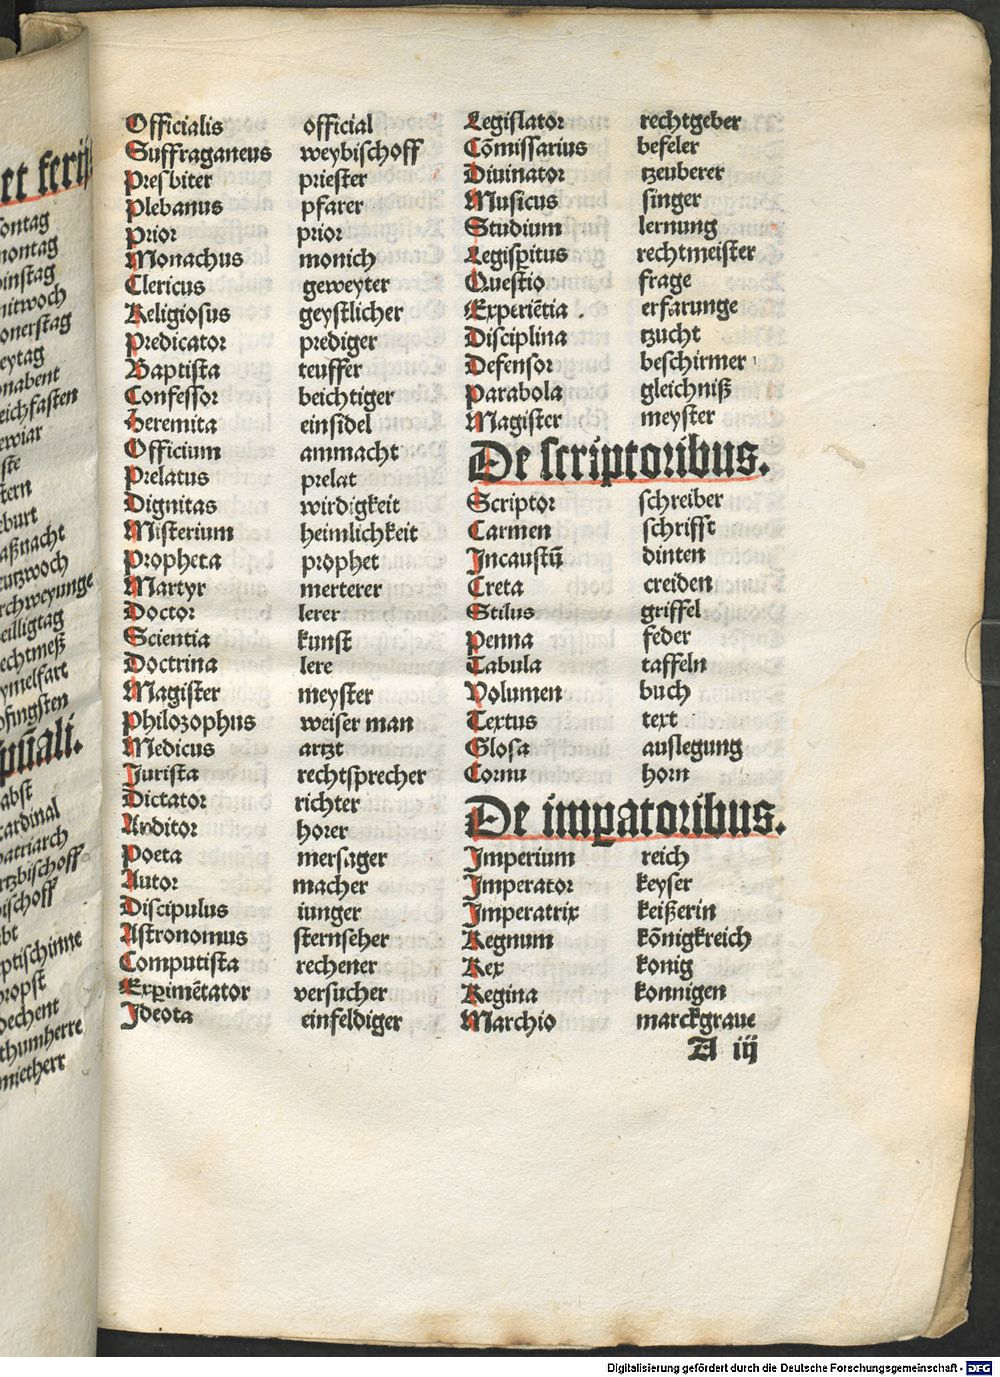 et ferijs
sontag
montag
dinstag
mitwoch
donerstag
freytag
sonabent
fasten
ostern
geburt
faßnacht
creutzwoch
kirchweyunge
heilligtag
lichtmeß
hymelfart
pfingsten
babst
cardinal
patriarch
ertzbischoff
bischoff
abt
eptischinne
propst
dechent
thumherre
Officialis official
Suffraganeus weybischoff
Presbiter priester
Plebanus pfarer
Prior prior
Monachus monich
Clericus geweyter
Religiosus geystlicher
Predicator prediger
Baptista teuffer
Confessor beichtiger
Heremita einsidel
Officium ammacht
Prelatus prelat
Dignitas wirdigkeit
Misterium heimlichkeit
Propheta prophet
Martyr merterer
Doctor lerer
Scientia kunst
Doctrina lere
Magister meyster
Philozophus weiser man
Medicus artzt
Jurista rechtsprecher
Dictator richter
Auditor horer
Poeta mersager
Autor macher
Discipulus iunger
Astronomus sternseher
Computista rechener
Exꝑimētator versucher
Jdeota einfeldiger
Legislator rechtgeber
Cōmissarius befeler
Diuinator tzeuberer
Musicus singer
Studium lernung
Legisꝑitus rechtmeister
Questio frage
Experiētia . erfarunge
Disciplina tzucht
Defensor beschirmer
Parabola gleichniß
Magister meyster
De scriptoribus.
Scriptor schreiber
Carmen schrifft
Jncaustū dinten
Creta creiden
Stilus griffel
Penna feder
Tabula taffeln
Volumen buch
Textus text
Glosa auslegung
Cornu horn
De imꝑatoribus.
Jmperium reich
Jmperator keyser
Jmperatrix keißerin
Regnum kōnigkreich
Rex konig
Regina konnigen
Marchio marckgraue
A iij
Digitalisierung gefördert durch die Deutsche Forschungsgemeinschaft - DFG